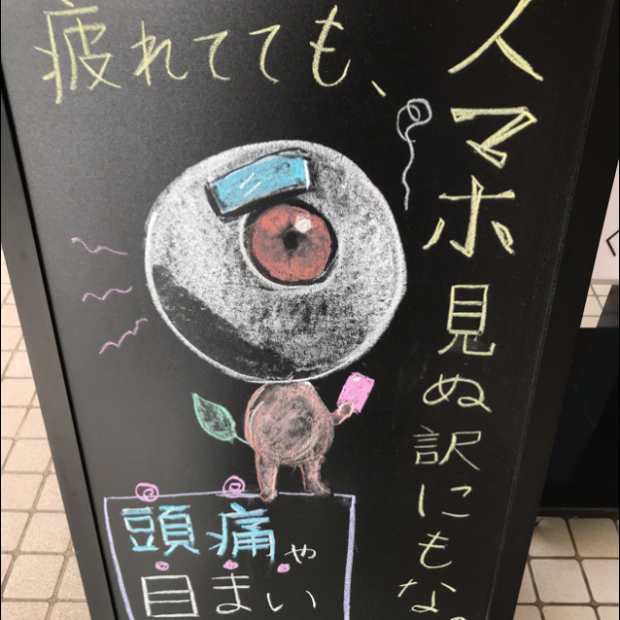 疲れてても、
スマホ見ぬ訳にもな
頭痛や
目まい